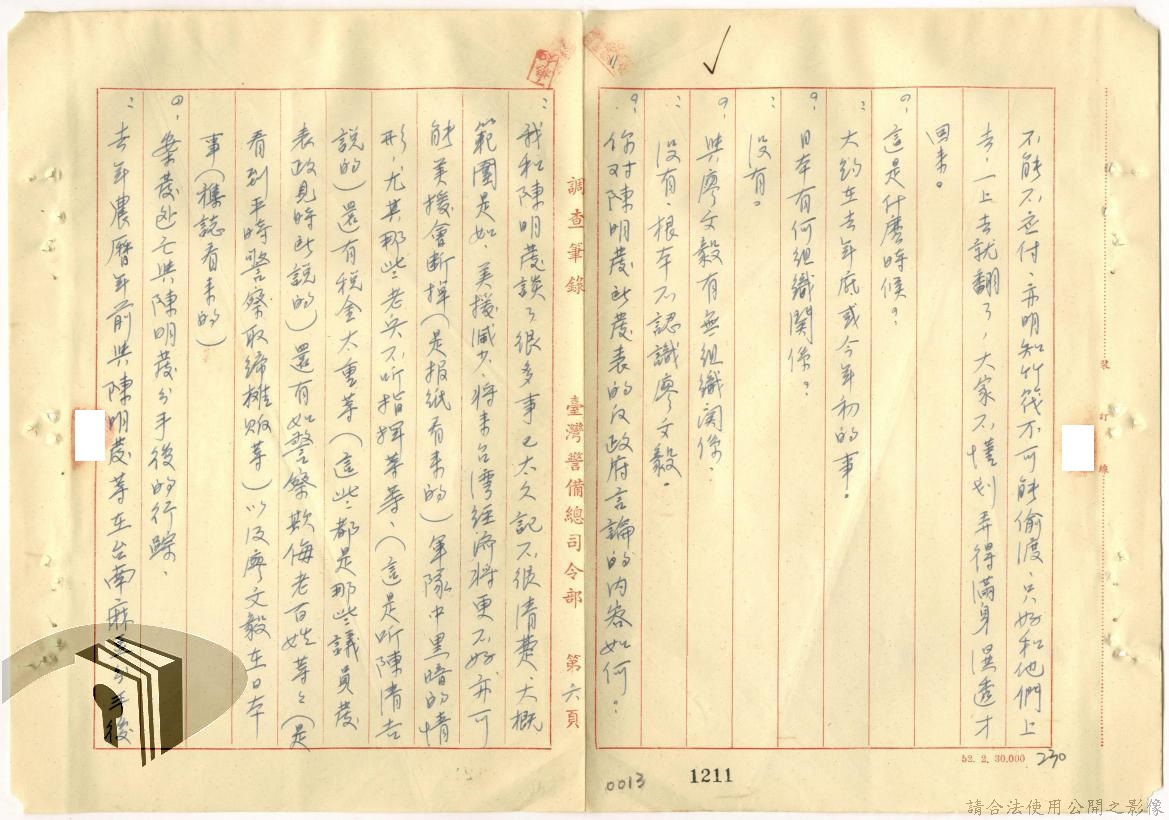 不能不应付，亦明知竹筏不可能偷渡，只好和他們上
去，一上去就翻了，大家不懂划弄得滿身濕透才
回來。
問：這是什麼時候？
答：大約在去年底或今年初的事。
問：日本有何組織関係？
答：没有。
問：與廖文毅有無組織関係，
答：没有，根本不認識廖文毅。
問：你对陳明發所發表的反政府言論的内容如何？
裝 訂 線
52. 2. 30,000
230
0013
1211
調查筆錄 臺灣警備總司令部 第六頁
答：我和陳明發談了很多事已太久記不很清楚、大概
範圍是如、美援減少、將來台湾経济將更不好亦可
能美援會断掉（是报纸看來的）軍隊中黑暗的情
形，尤其那些老兵不听指揮等等、（這是听陳清吉
說的）還有税金太重等（這些都是那些議員發
表政見時所說的）還有如警察欺侮老百姓等々（是
看到平時警察取締攤贩等）以及廖文毅在日本
事（雜誌看來的）
問：案發逃亡與陳明發分手後的行踪、
答：去年農曆年前與陳明發等在台南麻豆分手後
請合法使用公開之影像